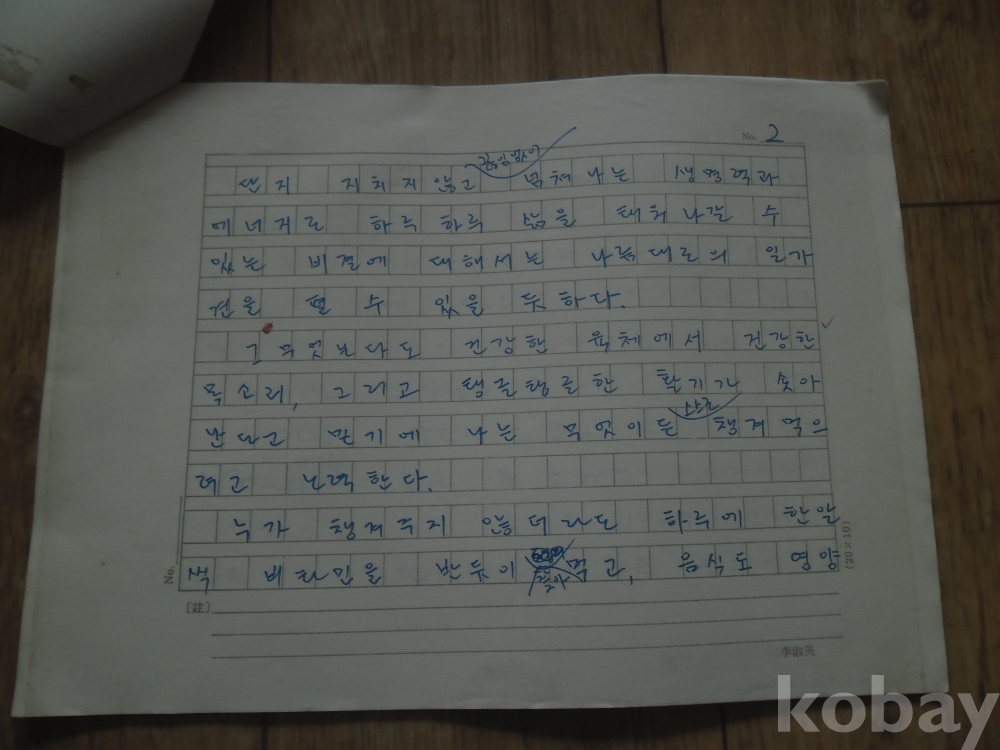 No. 2
끊임없이
단지 지치지 않고 넘쳐나는 생명력과
에너지로 하루 하루 삶을 태워 나갈 수
있는 비결에 대해서는 나름대로의 일가
견을 펼 수 있을 듯하다.
그 무엇보다도 건강한 육체에서 건강한
목소리, 그리고 탱글탱글한 활기가 솟아
스스로
난다고 믿기에 나는 무엇이든 챙겨 먹으
려고 노력한다.
누가 챙겨주지 않더라도 하루에 한알
씩 비타민을 반듯이 먹고, 음식도 영양
No.
(20×10)
[註]
李淑英
kobay